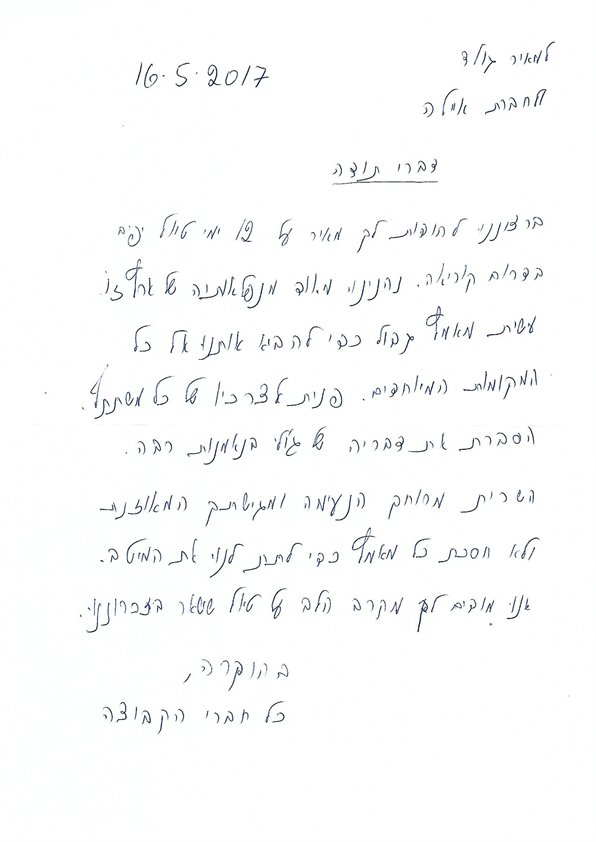 16.5.2017
למאיר גולד
ולחברת אילה
דברי תודה
ברצוננו להודות לך מאיר על 12 ימי טיול יפים
בדרום קוריאה. נהנינו מאוד מנפלאותיה של ארץ זו.
עשית מאמץ גדול כדי להביא אותנו אל כל
המקומות המיוחדים. פנית לצרכיו של כל משתתף.
הסברת את דבריה של ג'ולי בנאמנות רבה.
השרית מרוחך הנעימה ומגישתך המאוזנת
ולא חסכת כל מאמץ כדי לתת לנו את המיטב.
אנו מודים לך מקרב הלב על טיול ששאר בזכרוננו.
בהוקרה,
כל חברי הקבוצה